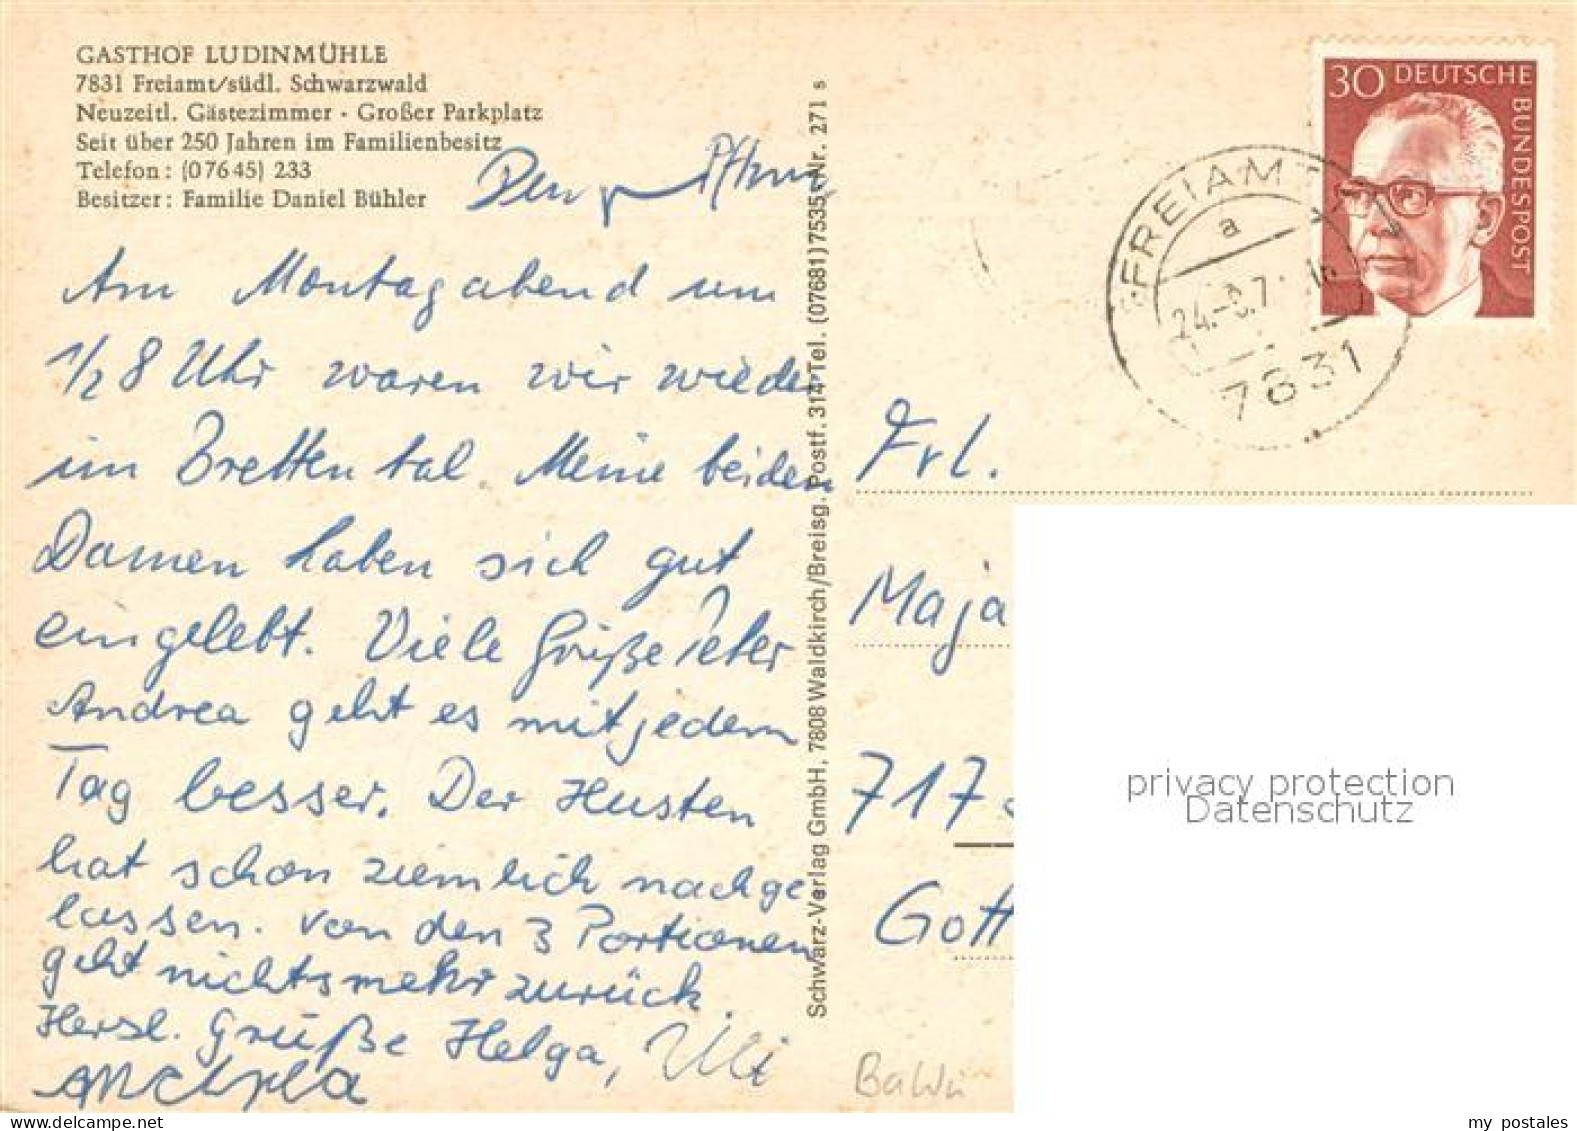 GASTHOF LUDINMÜHLE
7831 Freiamt/südl. Schwarzwald
Neuzeitl. Gästezimmer - Großer Parkplatz
Seit über 250 Jahren im Familienbesitz
Telefon: (07645) 233
Besitzer: Familie Daniel Bühler
Am Montagabend um
1/2 8 Uhr waren wir wieder
im Brettental. Meine beiden
Damen haben sich gut
eingelebt. Viele Grüße Peter
Andrea geht es mit jedem
Tag besser. Der Husten
hat schon ziemlich nachge
lassen. Von den 3 Portionen
geht nichts mehr zurück
Herzl. Grüße Helga, Uli
Schwarz-Verlag GmbH, 7808 Waldkirch/Breisg. Postf. 314 Tel. (07681) 7535 Nr. 271 s
30 DEUTSCHE BUNDESPOST
FREIAMT
a
7831
Frl.
Maja
717
Gott
BaWü
privacy protection
Datenschutz
my postales